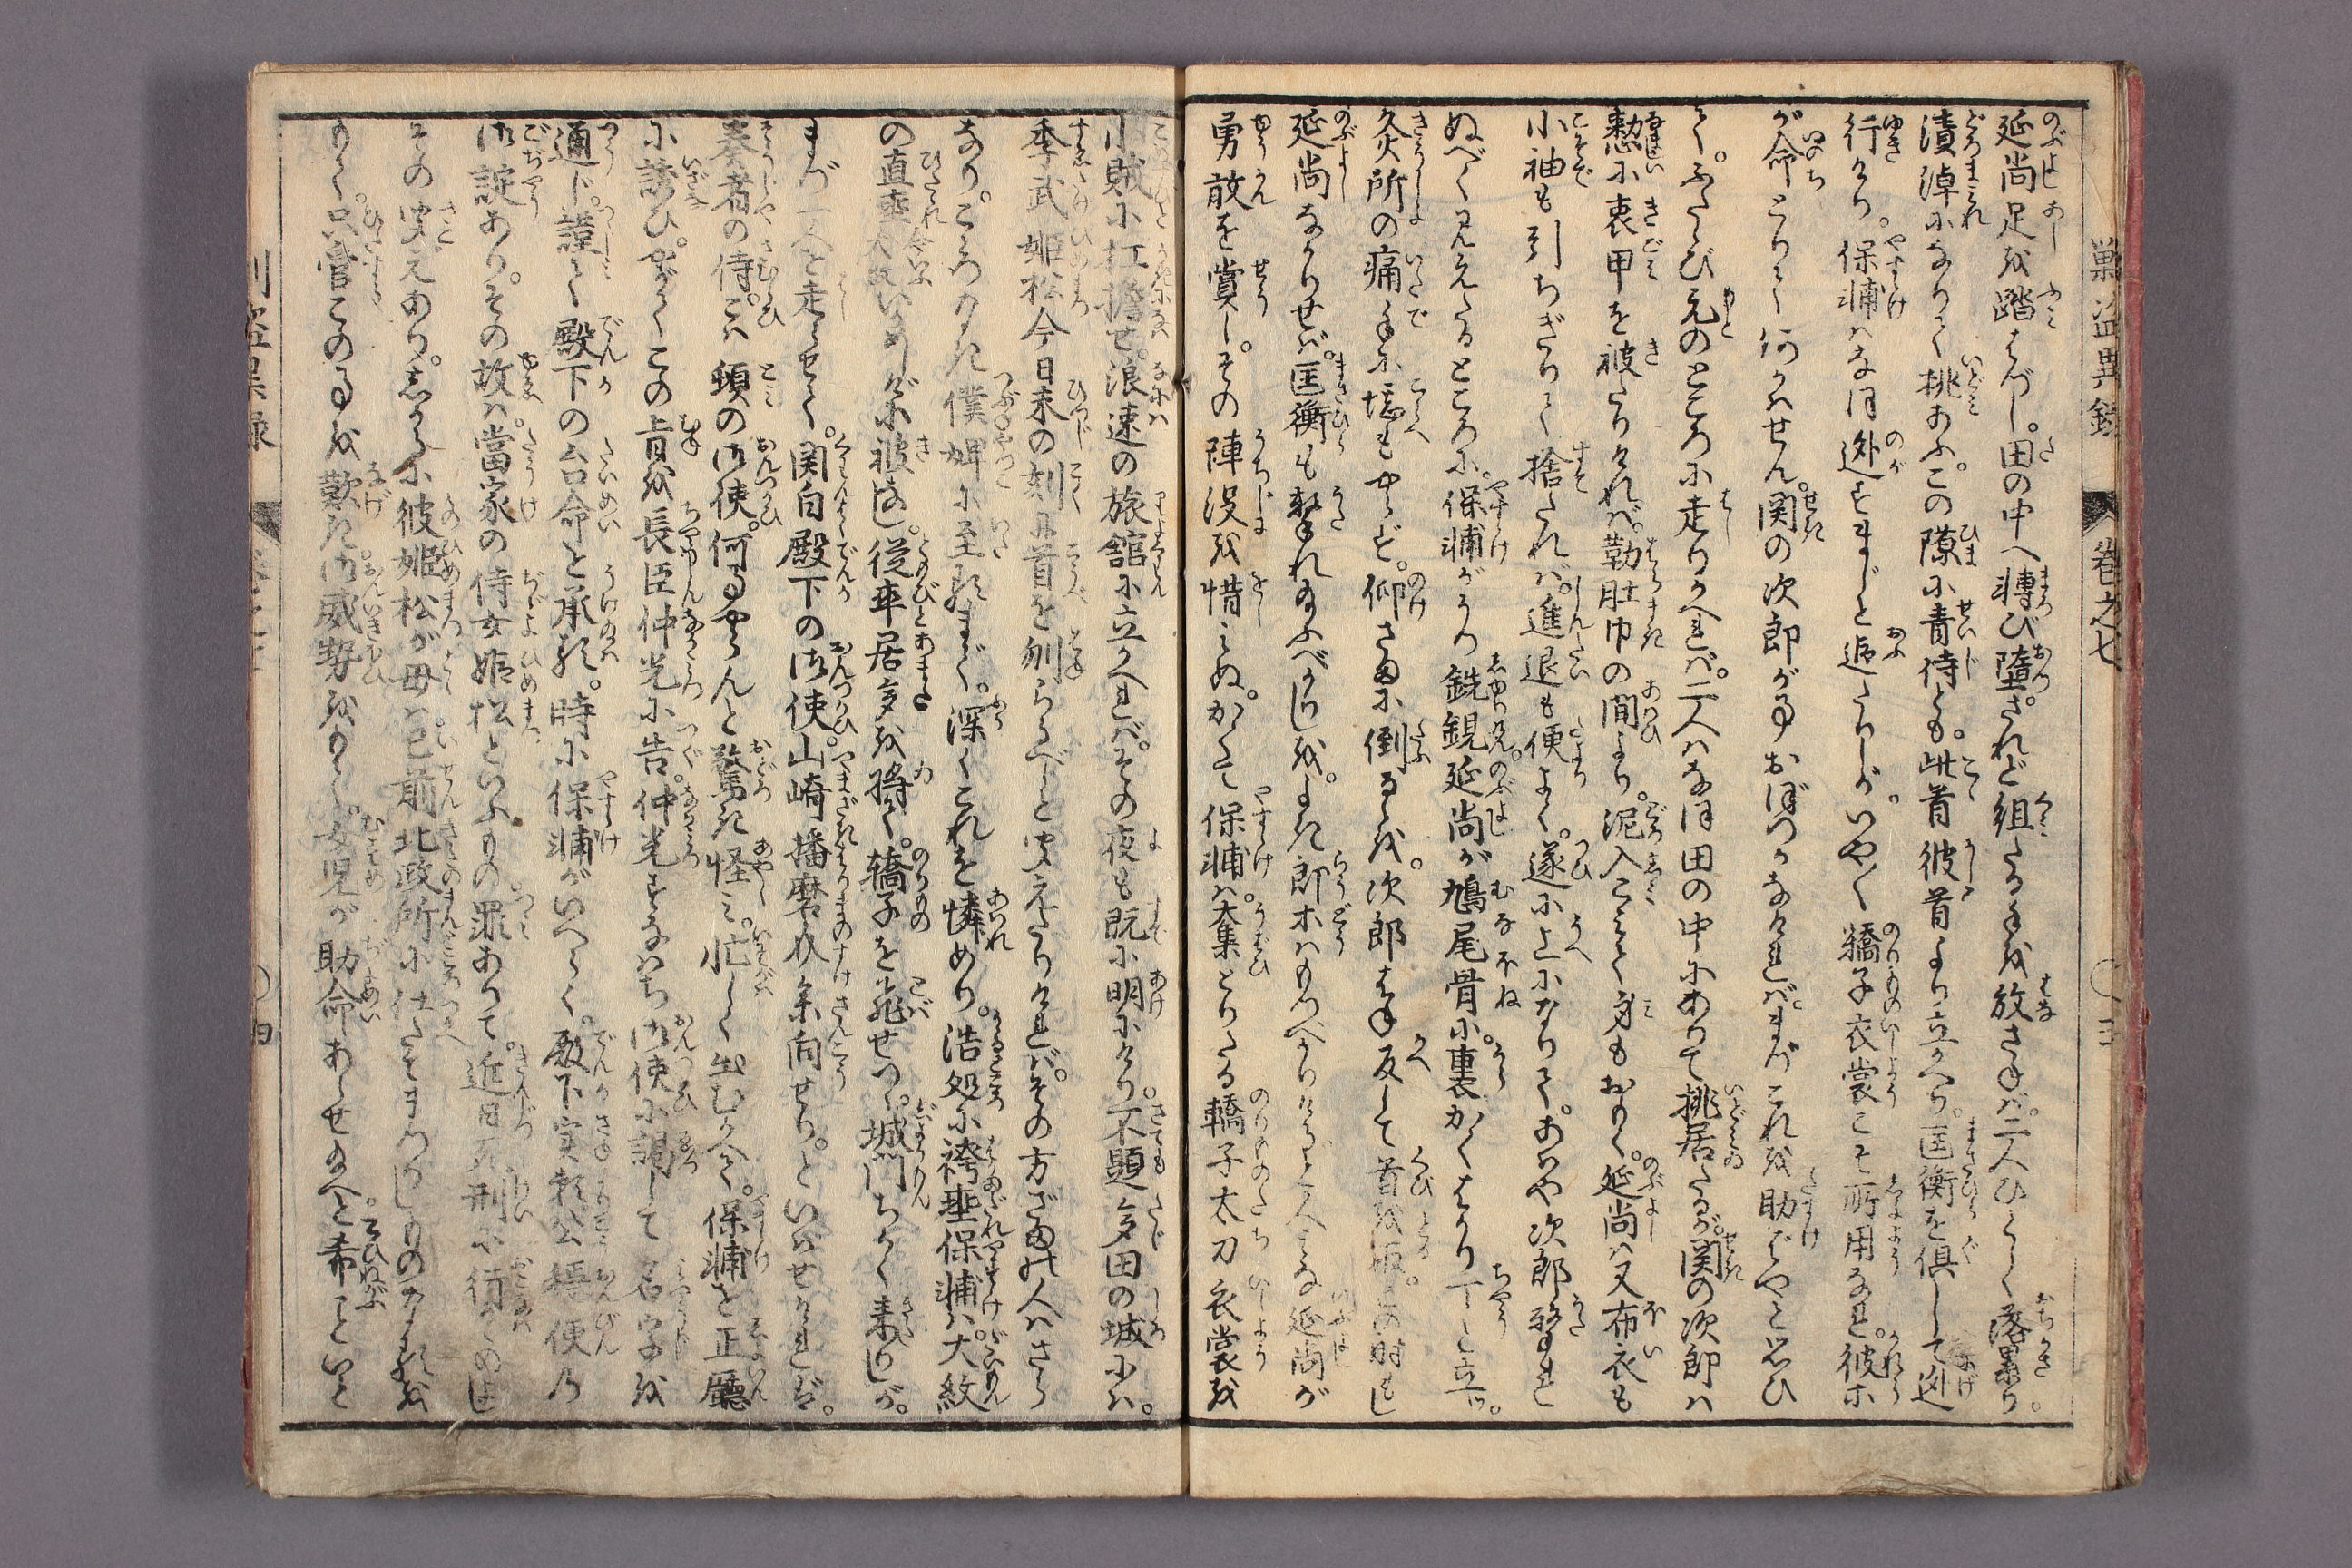 巣盗異録 巻之七 〇三
延尚足を踏はづし。田の中へ轉び墮。されど組たる手を放さねば。二人ひとしく落累り。
漬淖になりて挑あふ。この隙に青侍ども。此首彼首より立かへり。匡衡を倶して迯
行けり。保輔はなほ迯さまじと追たりしが。いや〳〵轎子衣裳こそ所用なれ。彼ホ
が命とりて何かはせん。関の次郎が事おぼつかなければ。まづこれを助ばやと思ひ
て。ふたゝび元のところに走りかへれば。二人はなほ田の中にありて挑居たるが。関の次郎は
懃に衷甲を被たりければ。勒肚巾の間より。泥入こみて身もおもく。延尚は又布衣も
小袖も引ちぎりて捨たれば。進退も便よく。遂に上になりて。あはや次郎撃れ
ぬべく見えたるところに。保輔がうつ銑鋧延尚が鳩尾骨に。裏かくばかり丁と立。
灸所の痛手に堪もやらず。仰さまに倒るゝを。次郎はね反して首を取。この時もし
延尚なかりせば。匡衡も撃れ給ふべかりしを。よき郎ホはもつべかりけりと人みな延尚が
勇敢を賞し。その陣没を惜みぬ。かくて保輔は。奪とりたる轎子太刀衣裳を
小賊に扛擔せ。浪速の旅舘に立かへれば。その夜も既に明にけり。不題多田の城には。
季武姫松今日未の刻に首を刎らるべしと聞えたりければ。その方ざまの人はさら
なり。こゝろなき僕婢に至るまで。深くこれを憐めり。浩処に袴垂保輔は。大紋
の直垂いかめしげに被なし。従卒居多を将て。轎子を飛せつゝ。城門ちかく来りしが。
まづ一人を走らせて。関白殿下の御使。山崎播磨介参向せり。といはせければ。
奏者の侍。こは頓の御使。何事やらんと驚き怪み。忙しく出むかへて。保輔を正廳
に誘ひ。やがてこの旨を長臣仲光に告。仲光すなはち御使に謁して名字を
通じ。謹て殿下の台命を承る。時に保輔がいへらく。殿下実頼公穏便の
御諚あり。その故は。當家の侍女姫松といふもの罪ありて。近日死刑に行るゝよし
その聞えあり。しかるに彼姫松が母は已前北政所に仕たてまつりしものなるを
もて。只管この事を歎き。御威勢をもて。女児が助命あらせ給へと希ことと